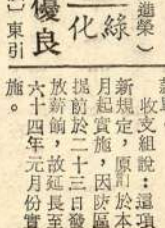 進榮）
綠
化
優良
］東引
收支組說：這項
新規定，原訂於本
月起實施，因防區
提前於二十三日發
放薪餉，故延長至
六十四年元月份實
施。